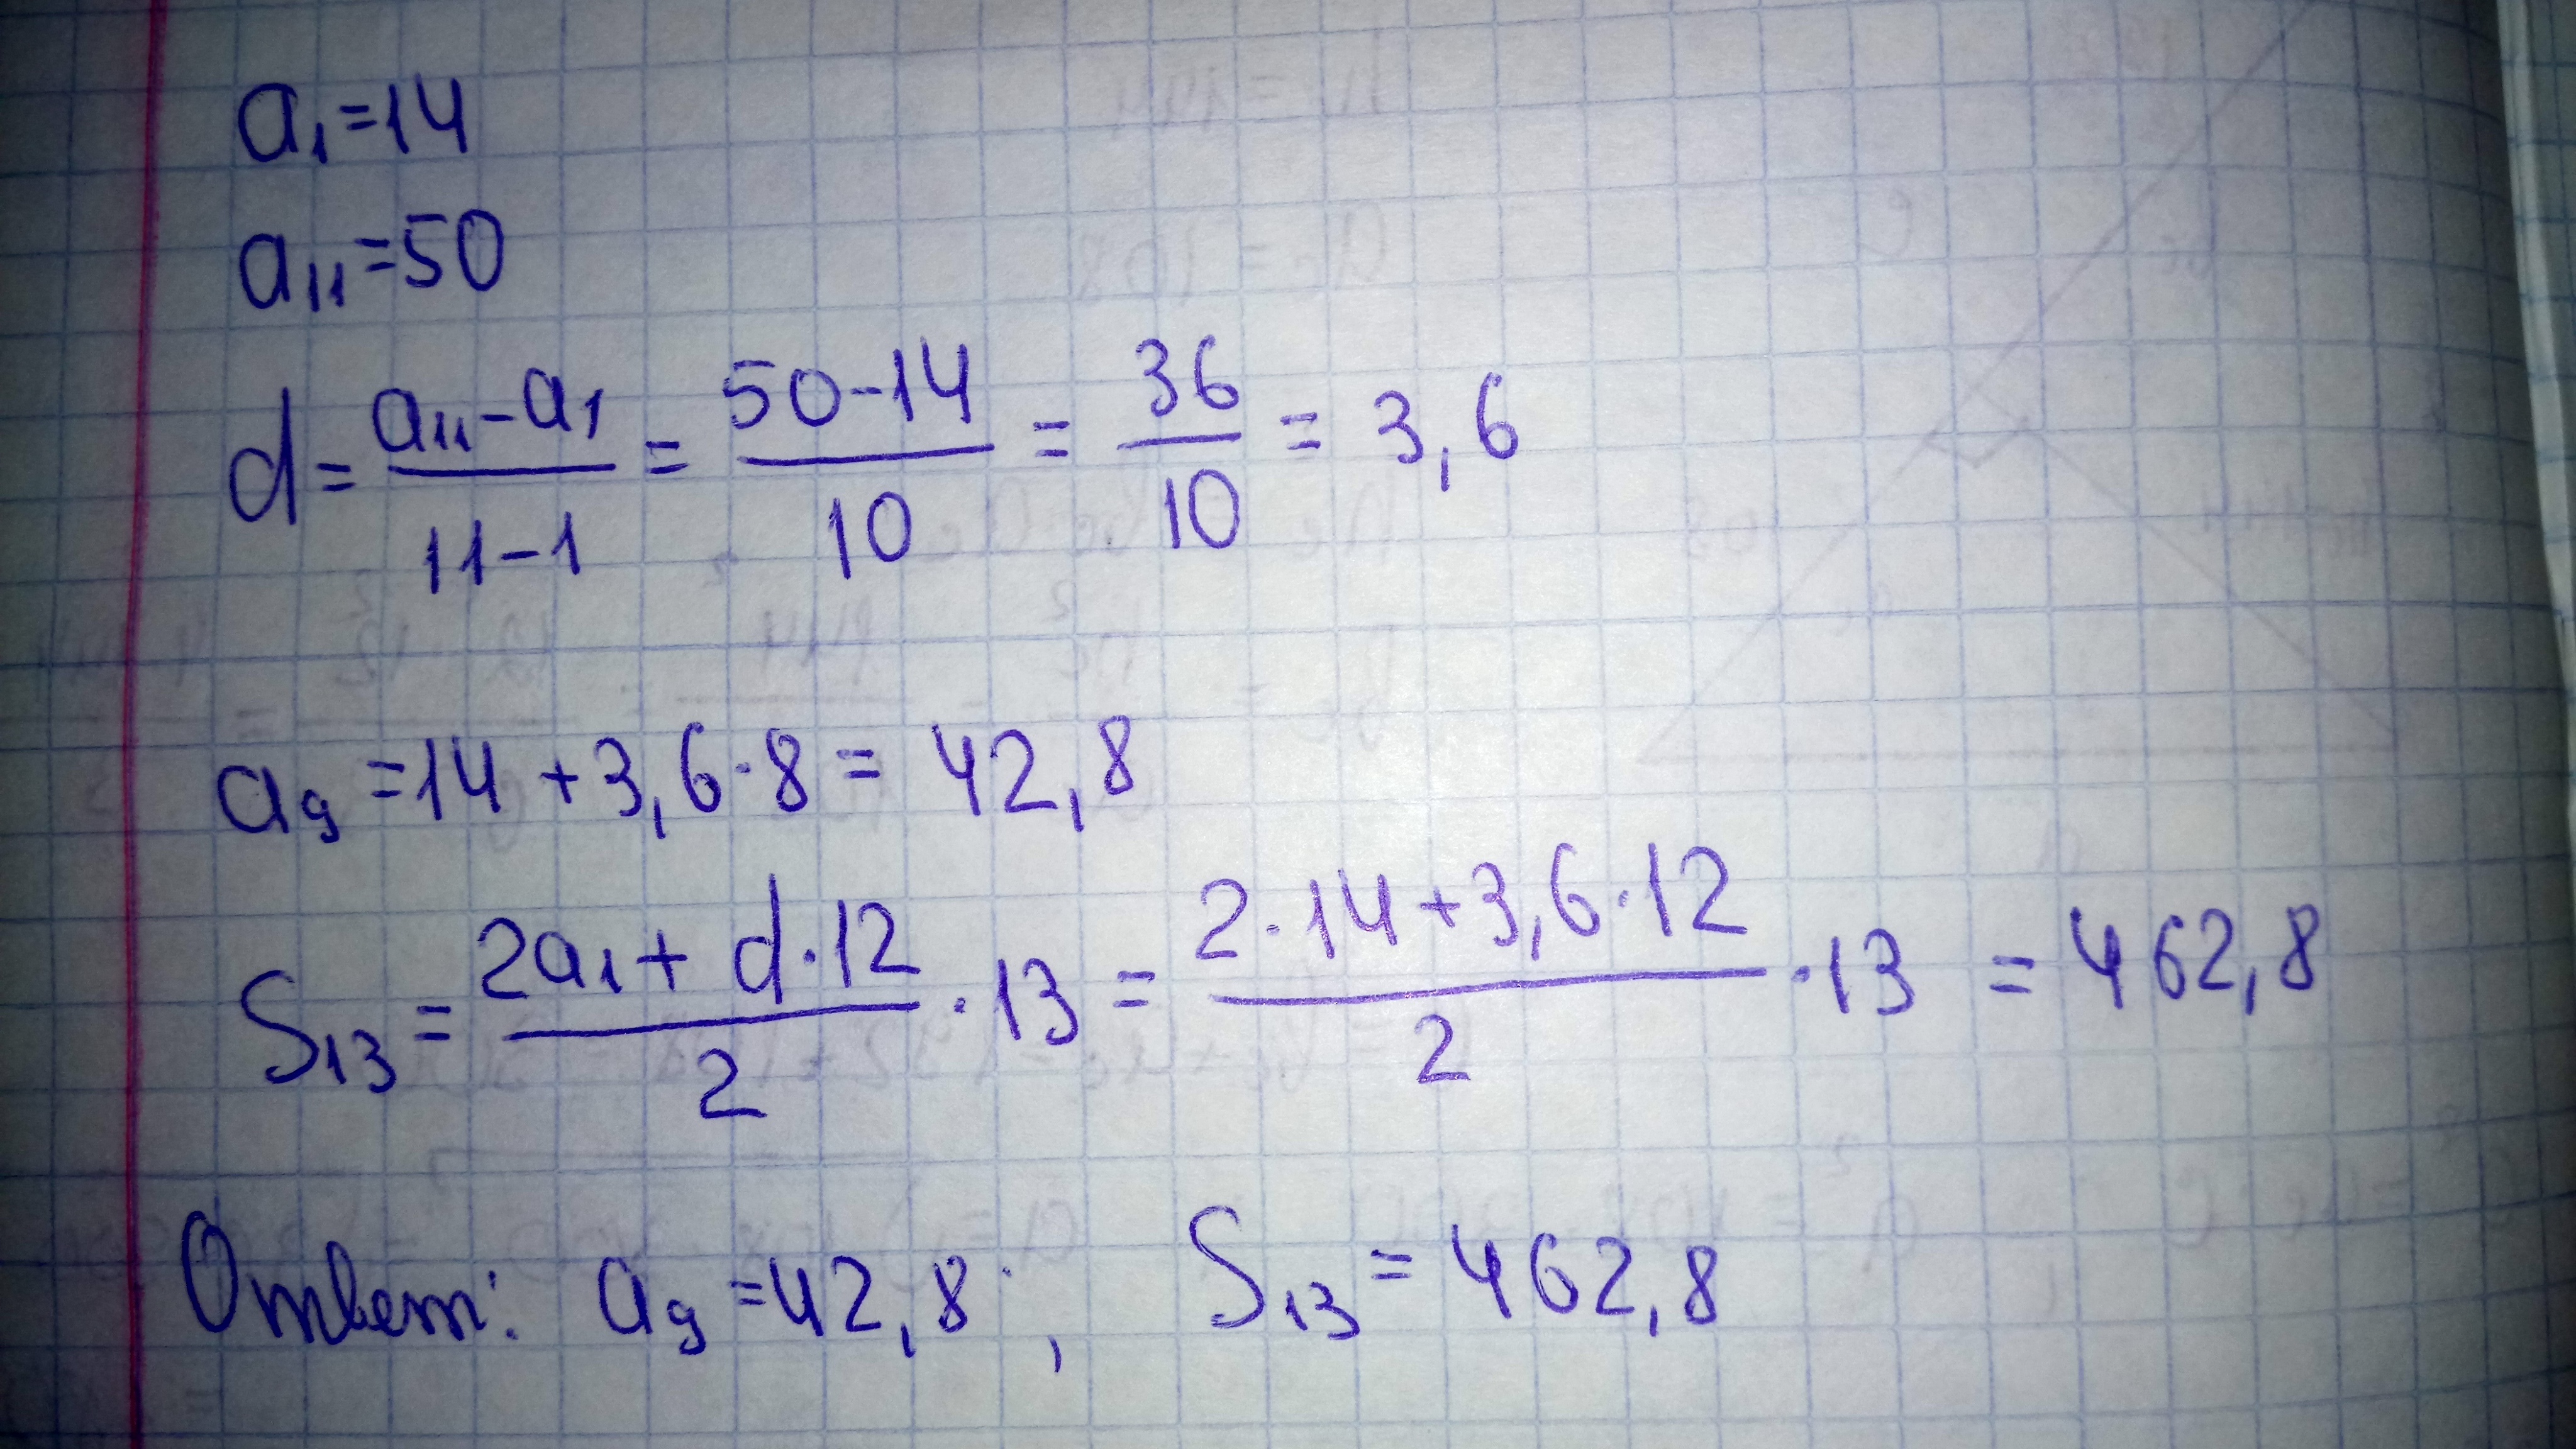 a₁=14
a₁₁=50
d = (a₁₁-a₁)/(11-1) = (50-14)/10 = 36/10 = 3,6
a₉ = 14 + 3,6·8 = 42,8
S₁₃ = (2a₁ + d·12)/2 · 13 = (2·14 + 3,6·12)/2 · 13 = 462,8
Ответ: a₉ = 42,8 ; S₁₃ = 462,8